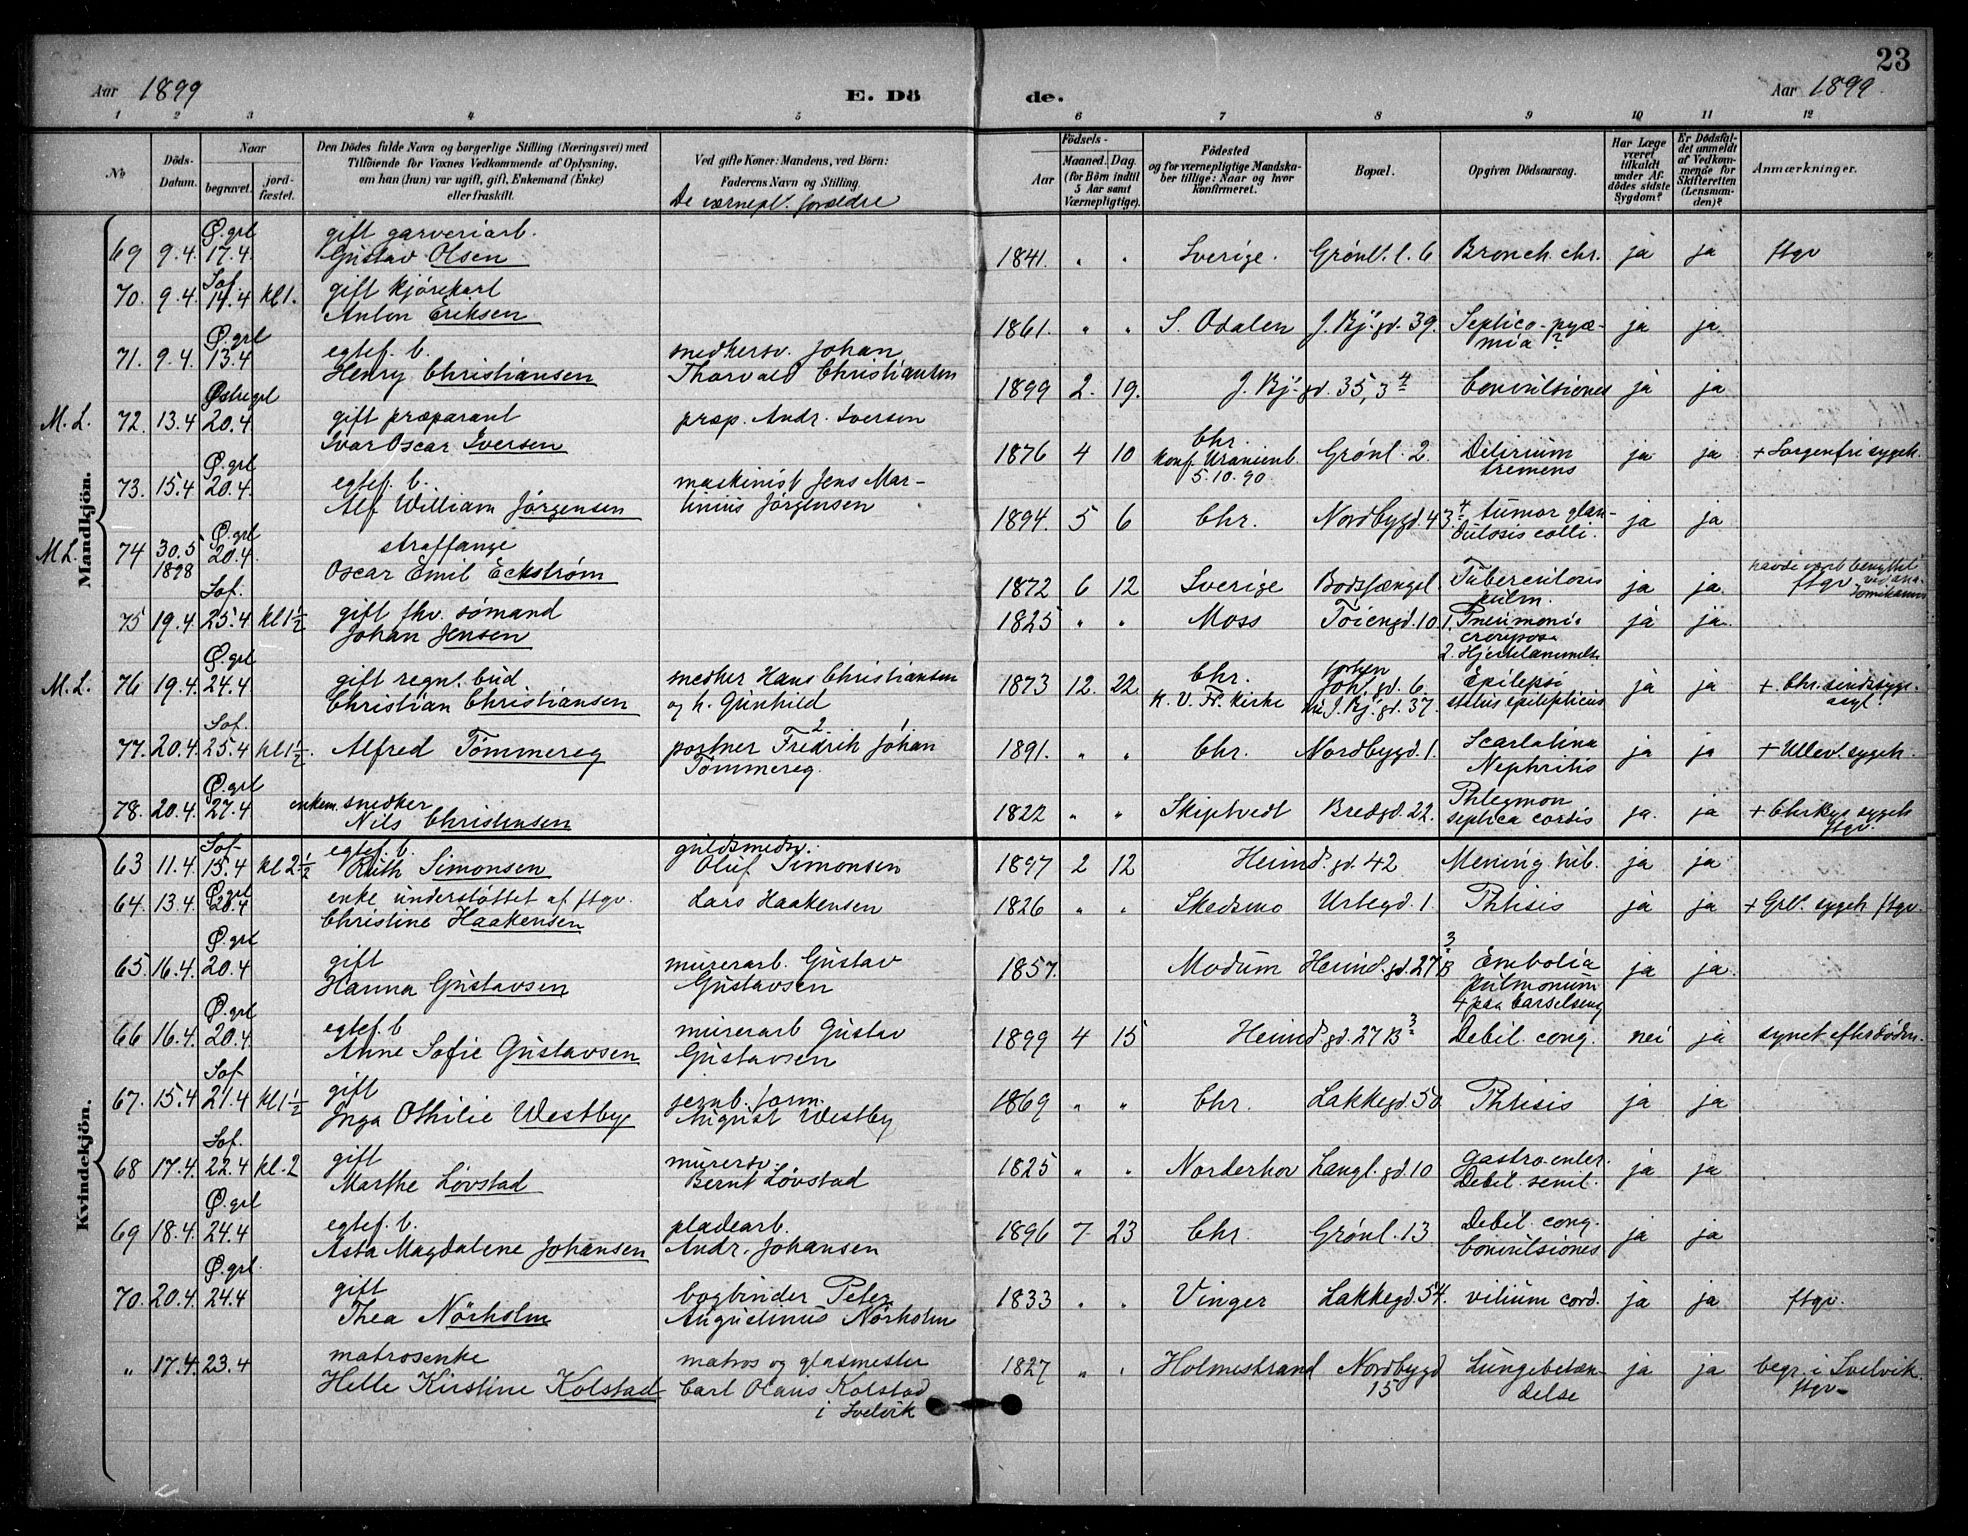 23
Aar 1899
E. Dö de.
Aar 1899.
1 2 3 4 5 6 7 8 9 10 11 12
No
Döds-Datum.
Naar
begravet.
jord-fæstet.
Den Dödes fulde Navn og borgerlige Stilling (Næringsvei) med
Tilföiende for Voxnes Vedkommende af Oplysning,
om han (hun) var ugift, gift, Enkemand (Enke)
eller fraskilt.
Ved gifte Koner: Mandens, ved Börn:
Faderens Navn og Stilling.
De værnepl. forældre
Födsels-
Aar
Maaned. Dag.
(for Börn indtil
5 Aar samt
Værnepligtige).
Födested
og for værnepligtige Mandska-
ber tillige: Naar og hvor
konfirmeret.
Bopæl.
Opgiven Dödsaarsag.
Har Læge
været
tilkaldt
under Af-
dödes sidste
Sygdom?
Er Dödsfal-
det anmeldt
af Vedkom-
mende for
Skifteretten
(Lensman-
den)?
Anmærkninger.
Mandkjön.
69 9.4. Ø.grl 17.4. gift garveriarb. Gustav Olsen 1841. " " Sverige. Grønl. l. 6 Bronch. chr. ja ja ftgv
70. 9.4. Sof. 14.4 kl 1. gift kjørekarl Anton Eriksen 1861. " " S. Odalen J. Bj. gd. 39. Septico-pyæ-mia? ja ja
71. 9.4. Ø.grl 13.4 egtef. b. Henry Christiansen snedkersv. Johan Thorvald Christiansen 1899 2. 19. J. Bj. gd. 35, 3 4 Convulsiones ja ja
M. L. 72. 13.4 Østregrl 20.4 gift præparant Ivar Oscar Iversen præp. Andr. Iversen 1876 4 10 Chr. Konf. Uranienb. 5.10.90. Grønl. 2. Delirium tremens ja ja + Sorgenfri sygeh.
73. 15.4 Ø.grl 20.4. egtef. b. Alf William Jørgensen maskinist Jens Mar-tinius Jørgensen 1894. 5 6 Chr. Nordbygd. 43. 4 tumor glan-dulosis colli. ja ja
M L. 74 30.5 1898 Ø.grl 20.4. straffange Oscar Emil Eckstrøm 1872 6 12 Sverige Bodsfængsl. Tuberculosis pulm. ja ja. ftgv
75 19.4 Sof. 25.4 kl 1½ gift fhv. sømand Johan Jensen 1825 " " Moss Tøiengd. 10 1. Pneumoni crouposa 2. Hjertelammelse ja ja.
M. L. 76 19.4. Ø.grl 24.4 gift regn. bud Christian Christiansen snedker Hans Christiansen og h. Gunhild 1873 12. 22. Chr. K. V. Fr. Kirke Joh. gd. 6. J. Bj. gd. 37. Epilepsi status epilepticus ja ja + Chr. sindssyge-asyl.
77. 20.4. Sof. 25.4 kl 1½. Alfred Tømmereg portner Fredrik Johan Tømmereg. 1891. " " Chr. Nordbygd. 1. Scarlatina Nephritis ja ja + Ullev. sygeh.
78. 20.4. Ø.grl 27.4 enkem. snedker Nils Christensen 1822 " " Skiptvedt Bredgd. 22. Phlegmon septica ja. ja + Chr. Bys sygeh ftgv.
Kvindekjön.
63 11.4. Sof. 15.4 kl 2½ egtef. b. Ruth Simonsen guldsmedsv. Oluf Simonsen 1897 2 12 Heimd. gd. 42 Mening. tub. ja ja
64. 13.4. Ø.grl 20.4 enke understøttet af ftgv. Christine Haakensen Lars Haakensen 1826 " " Skedsmo Urtegd. 1. Phtisis ja ja + Grl. sygeh. ftgv.
65. 16.4. Ø.grl 20.4 gift Hanna Gustavsen murerarb. Gustav Gustavsen 1857. Modum Heimd. gd. 27 B 3 Embolia pulmonum + paa barselseng ja ja
66 16.4. Ø.grl 20.4 egtef. b. Anne Sofie Gustavsen murerarb Gustav Gustavsen 1899 4 15 Heimd gd. 27 B 3 Debil. cong. nei ja synet efter døden.
67. 15.4 Sof 21.4 kl 1½ gift Inga Othilie Westby jernb. form. August Westby 1869 " " Chr. Lakkegd. 50 Phtisis ja ja
68 17.4. Sof. 22.4 kl. 2 gift Marthe Løvstad murersv. Bernt Løvstad 1825 " " Norderhov Langl. gd. 10 gastro enter. Debil. senil. ja ja
69 18.4. Ø.grl 24.4 egtef. b. Asta Magdalene Johansen pladearb. Andr. Johansen 1896 7. 23 Chr. Grønl. 13 Debil. cong. Convulsiones ja ja
70. 20.4. Ø.grl. 24.4 gift Thea Nørholm bogbinder Peter Augustinus Nørholm 1833 " " Vinger Lakkegd. 54. vitium cord. ja ja ftgv.
" 17.4. 23.4 matrosenke Helle Kirstine Kolstad matros og glasmester Carl Olaus Kolstad i Svelvik 1827 " " Holmestrand Nordbygd 15 Lungebetæn-delse ja ja begr. i Svelvik. ftgv